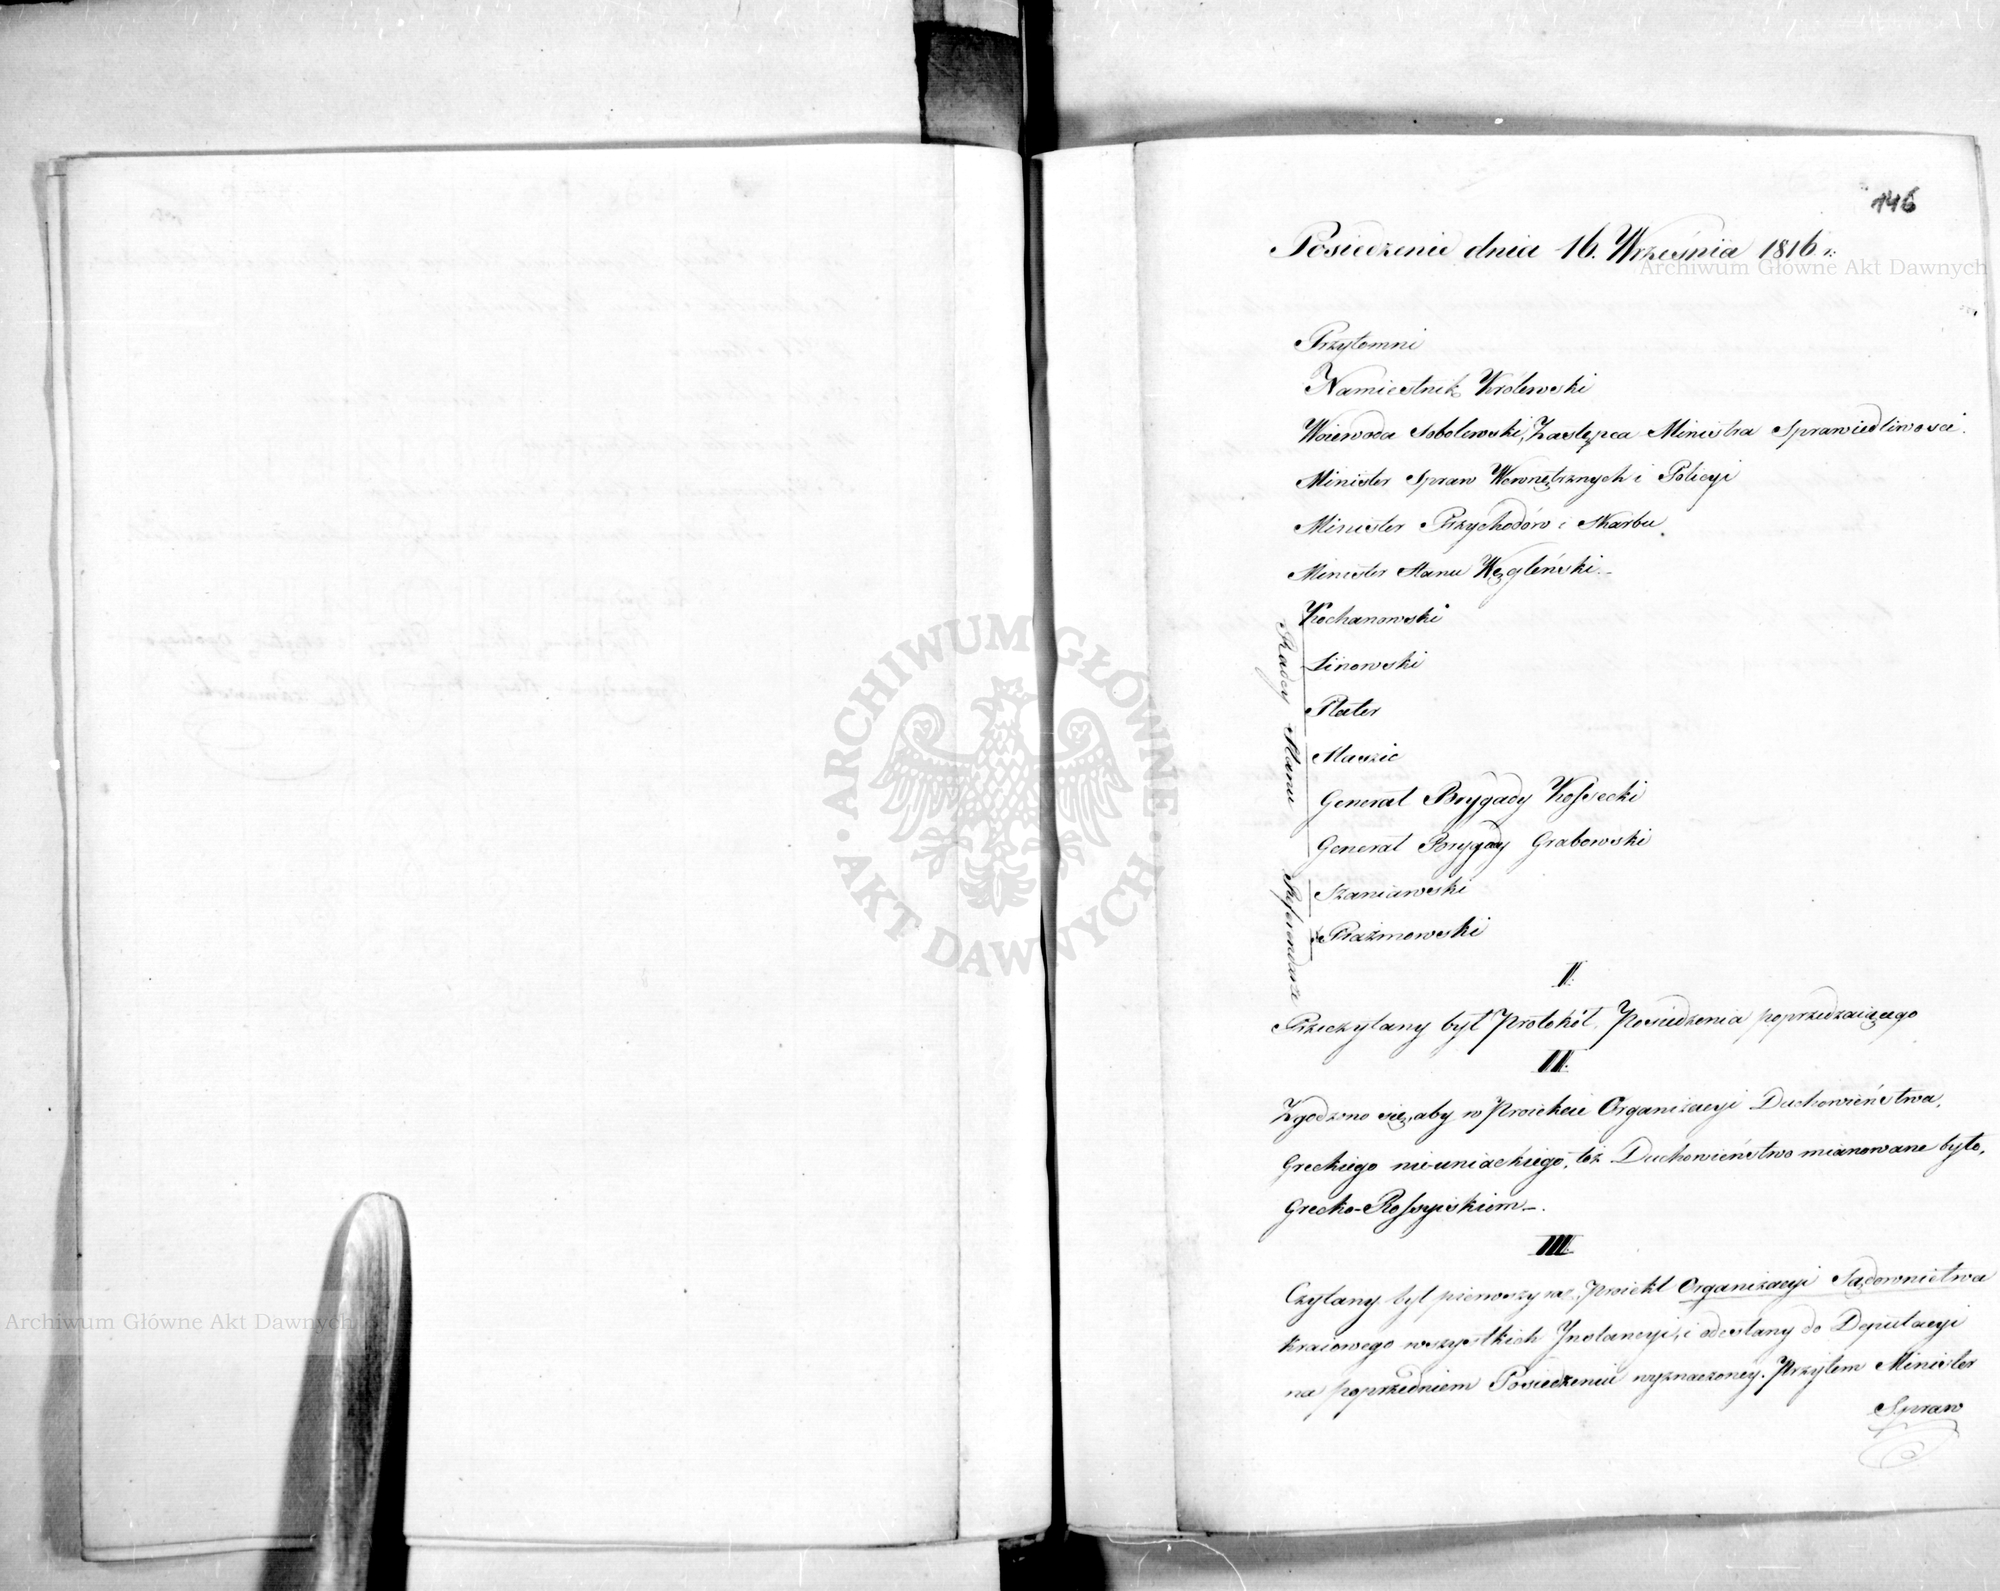 146
Posiedzenie dnia 16. Września 1816 r:
Archiwum Główne Akt Dawnych
Przytomni
Namiestnik Królewski
Woiewoda Sobolewski, Zastępca Ministra Sprawiedliwosci.
Minister Spraw Wewnętrznych i Policyi
Minister Przychodów i Skarbu
Minister Stanu Węgleński._
Radcy Stanu
Kochanowski
Linowski
Plater
Generał Brygady Kossecki
Generał Brygady Grabowski
Referendarze
Szaniawski
Prażmowski
I.
Przeczytany był Protokół Posiedzenia poprzedzaiącego
II.
Zgodzono się, aby w Proiekcie Organizacyi Duchowieństwa,
Greckiego nie-uniackiego, też Duchowieństwo mianowane było,
Grecko-Rossyiskiem_.
III.
Czytany był pierwszy raz, Proiekt Organizacyi Sądownictwa
kraiowego wszystkich Instancyi, i odesłany do Deputacyi
na poprzedniem Posiedzeniu wyznaczoney. Przytem Minister
Spraw
ARCHIWUM GŁÓWNE AKT DAWNYCH
Archiwum Główne Akt Dawnych